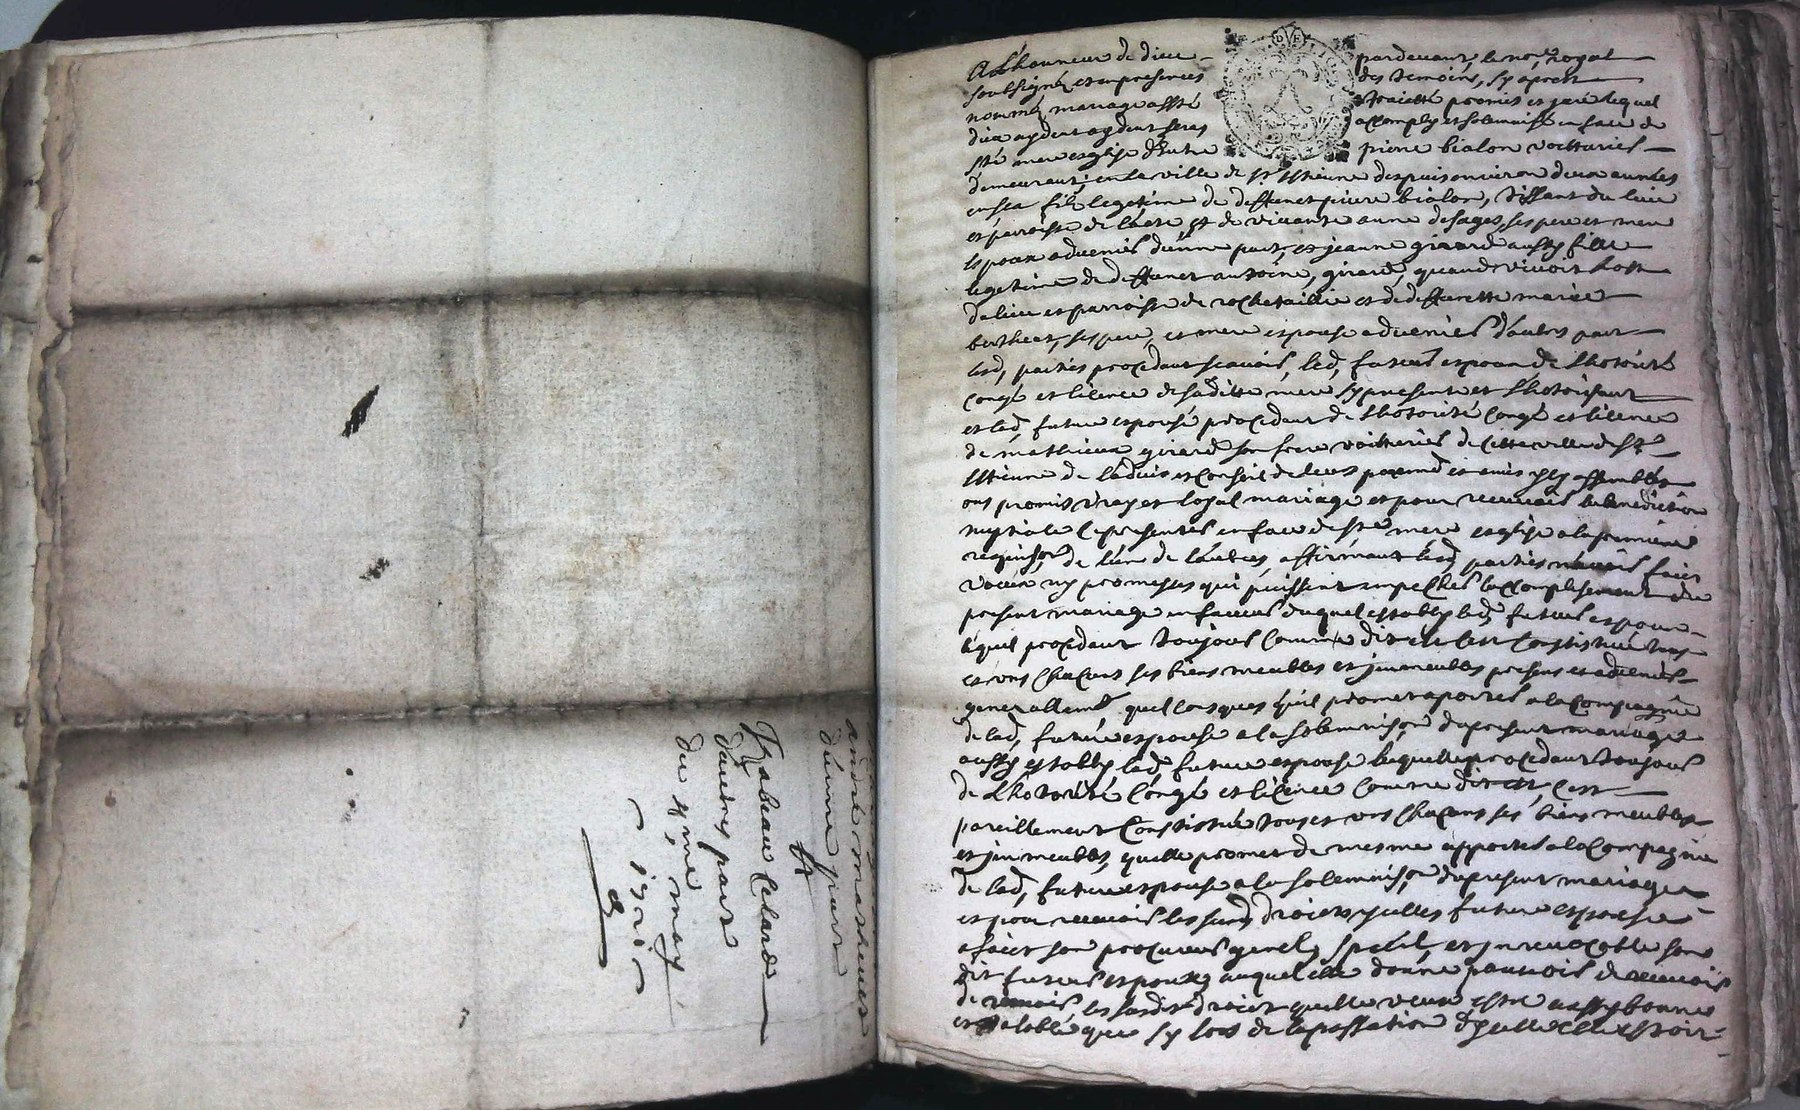 andré matheuet
d'aune part
et
Ysabeau Celard
d'autre part
du 4me may
DE
A L'honneur de dieu pardevant le nore Royal
soubsigné et en presences des temoins sy apres
nommés mariage a esté traietté promis et juré lequel
dieu aydent aydent seras accomplÿ et solemnisé en face de
ste mere esglise Entre pierre bialon voitturier
demeurant en la ville de st Estienne despuis environ deux années
en sea fils legetime de deffunct pierre bialon, tissant du lieu
et parroisse de et de vivante anne desages, ses pere et mere
Espoux advenir d'une part, et jeanne girard aussy fille
legetime de deffunct antoine girard, quand vivoit hoste
du lieu et parroisse de rochetaillié et de deffunette marie
bertheas, ses pere et mere espouse advenir d'autre part
lesd. parties procedant scavoir, led. futeur espoux de Lhotorité
Congé et licence de sa ditte mere sy presente et Lhotorisant
et lad. future espouse procedant de Lhotorité Congé et licence
de mathieux girard son frere voitturier de Cette ville de st
Estienne de l'advis et Conseil de leurs parand et amis issy assemblés
ont promis vray et loyal mariage et pour recevoir la benediction
nuptiale se presenter en face de ste mere esglise a la premiere
requision de l'un de l'autre, affirmant lesd. parties n'avoir faict
voeux ny promesses qui puissent empecher laccomplisement du
present mariage en faveur duquel establÿ led. futeur espoux
lequel procedant toujour Comme dit est Cest Constistué tous
et uns Chacuns ses biens meubles et jmmeubles presens et advenir
generallemt quelconques qu'il promet aporter a la Compagnie
de lad. future espouse a la solemnison du present mariage
aussy establÿ lad. future espouse laquelle procedant toujour
de Lhotorité Congé et licence Comme dit est, Cest
pareillement Constistué tous et uns Chacuns ses biens meubles
et jmmeubles, quelle promet de mesme apporter a la Compagnie
de led. futeur espoux a la solemnison du present mariage
et pour recevoir les susd. droicts jcelles future espouse
a faict son procureur genel, spetial, et jrrevocable son
dit futeur espoux auquel elle donne pouvoir de recevoir
de les susdit droict quelle veux estre aussy bonne
et valoble que sy lors de la passation dycelle elle estoit